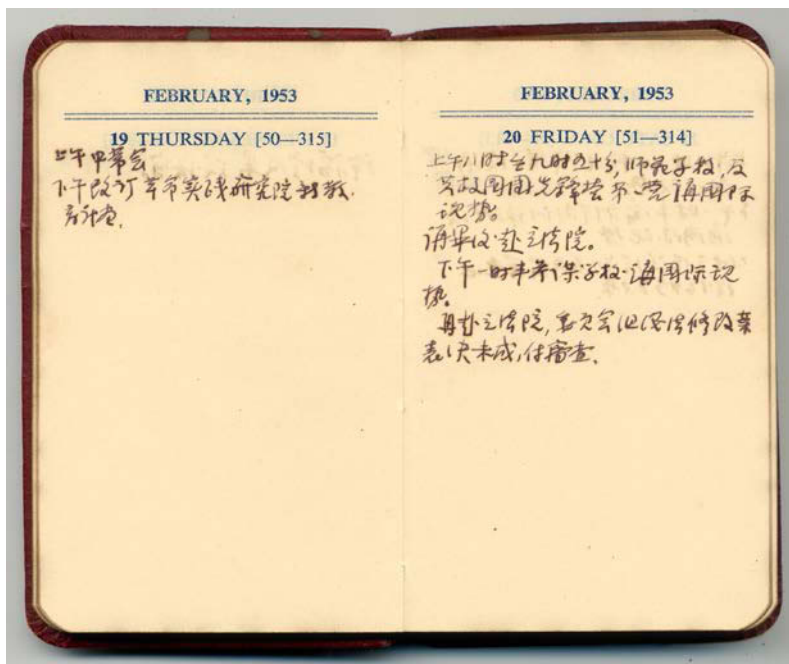 FEBRUARY, 1953
19 THURSDAY [50—315]
上午中常会
下午改订革命实践研究院
方针查,
FEBRUARY, 1953
20 FRIDAY [51—314]
上午八时至九时五十分,师范学校,及
讲国际
况势。
讲毕后赴立法院。
下午一时半参谋学校讲国际现
势。
再赴立法院,委员会 法修改案
表决未成,付审查.